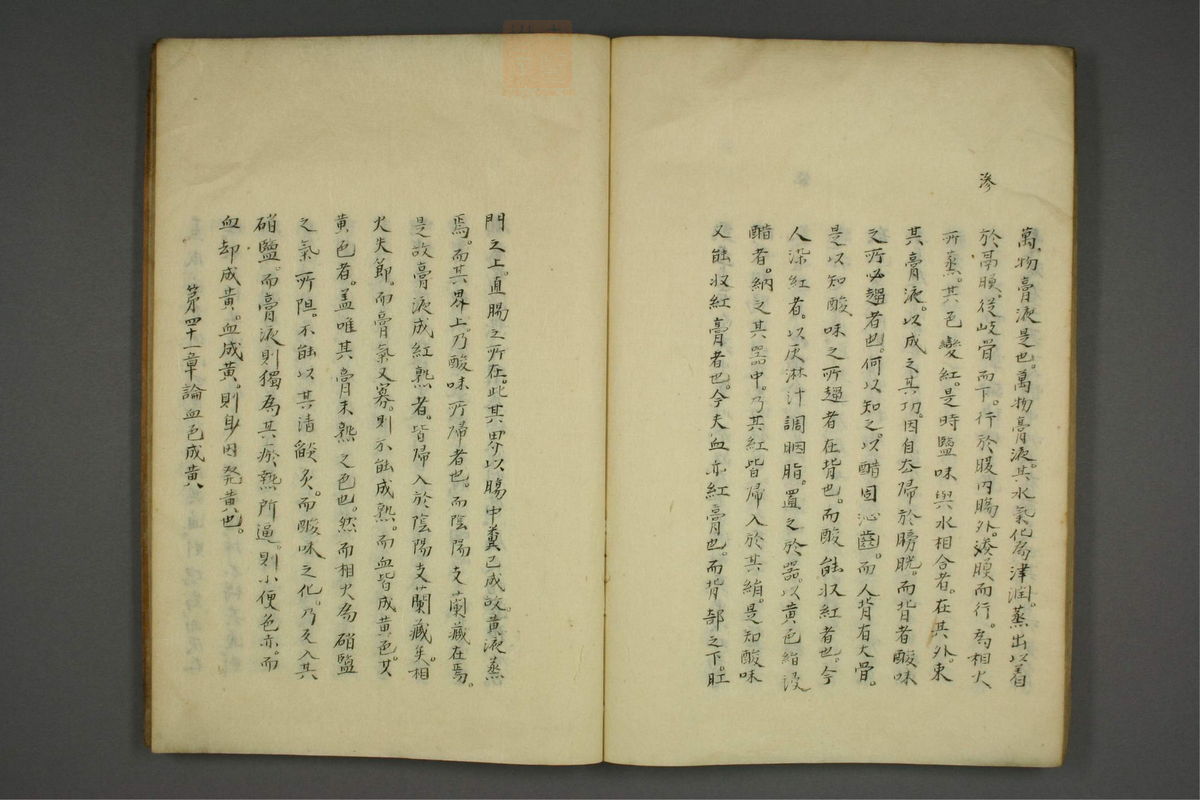 滲
萬物膏液是也。萬物膏液。其水氣化爲津潤。蒸出以着
於鬲膜。從岐骨而下。行於腹内腸外。湊膜而行。為相火
所蒸。其色變紅。是時鹽味與水相合者。在其外。束
其膏液。以成之其功。因自夲帰於膀胱。而背者酸味
之所必趨者也。何以知之。以醋固沁齒。而人背有大骨。
是以知酸味之所趨者在背也。而酸能収紅者也。今
人染紅者。以灰淋汁調胭脂。置之於器。以黄色絹設
醋者。納之其器中。乃其紅皆帰入於其絹。是知酸味
又能収紅膏者也。今夫血亦紅膏也。而背部之下。肛
門之上。直腸之所在。此其界以腸中糞已成故。黄液蒸
焉。而其界上。乃酸味所帰者也。而陰陽支蘭藏在焉。
是故膏液成紅熟者。皆帰入於陰陽支蘭藏矣。相
火失節。而膏氣又寡。則不能成熟。而血皆成黄色。其
黄色者。盖唯其膏未熟之色也。然而相火為硝鹽
之氣所阻。不能以其清燄炙。而酸味之化。乃反入其
硝鹽。而膏液則獨為其瘀熱所逼。則小便色赤。而
血却成黄。血成黄。則身因発黄也。
第四十一章論血色成黄